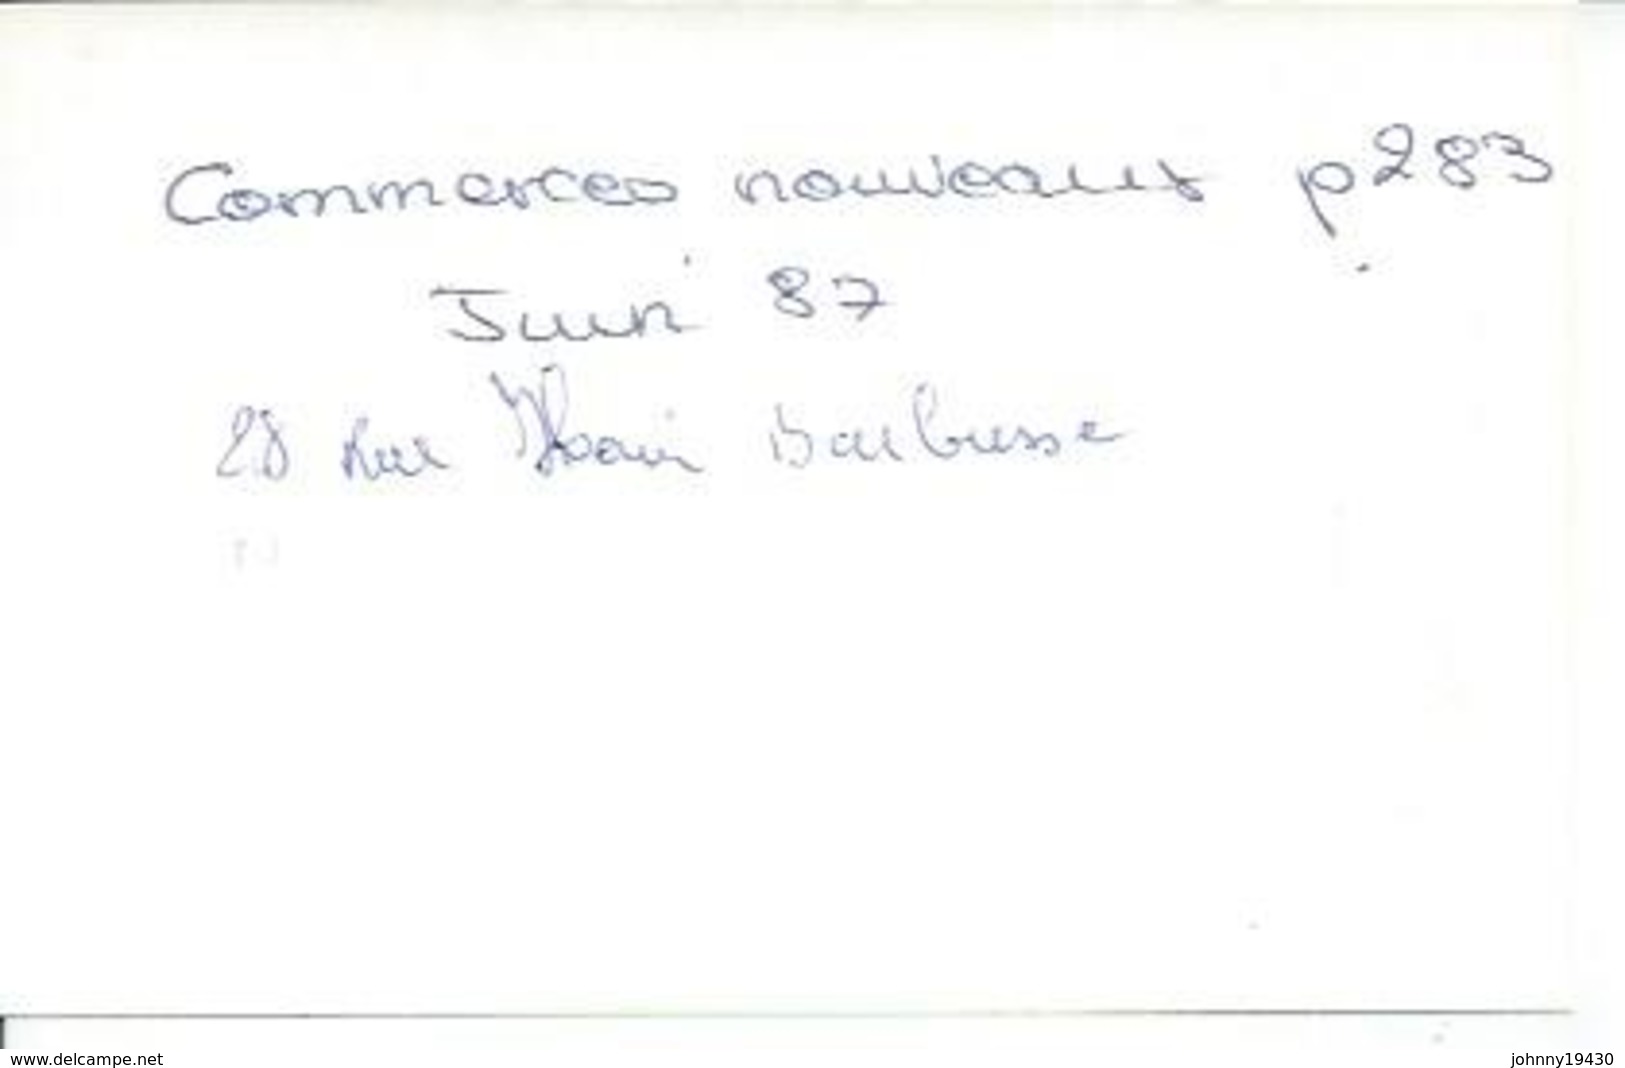 Commerces nouveaux p 283
Juin 87
28 Rue Henri Barbusse
www.delcampe.net
johnny19430